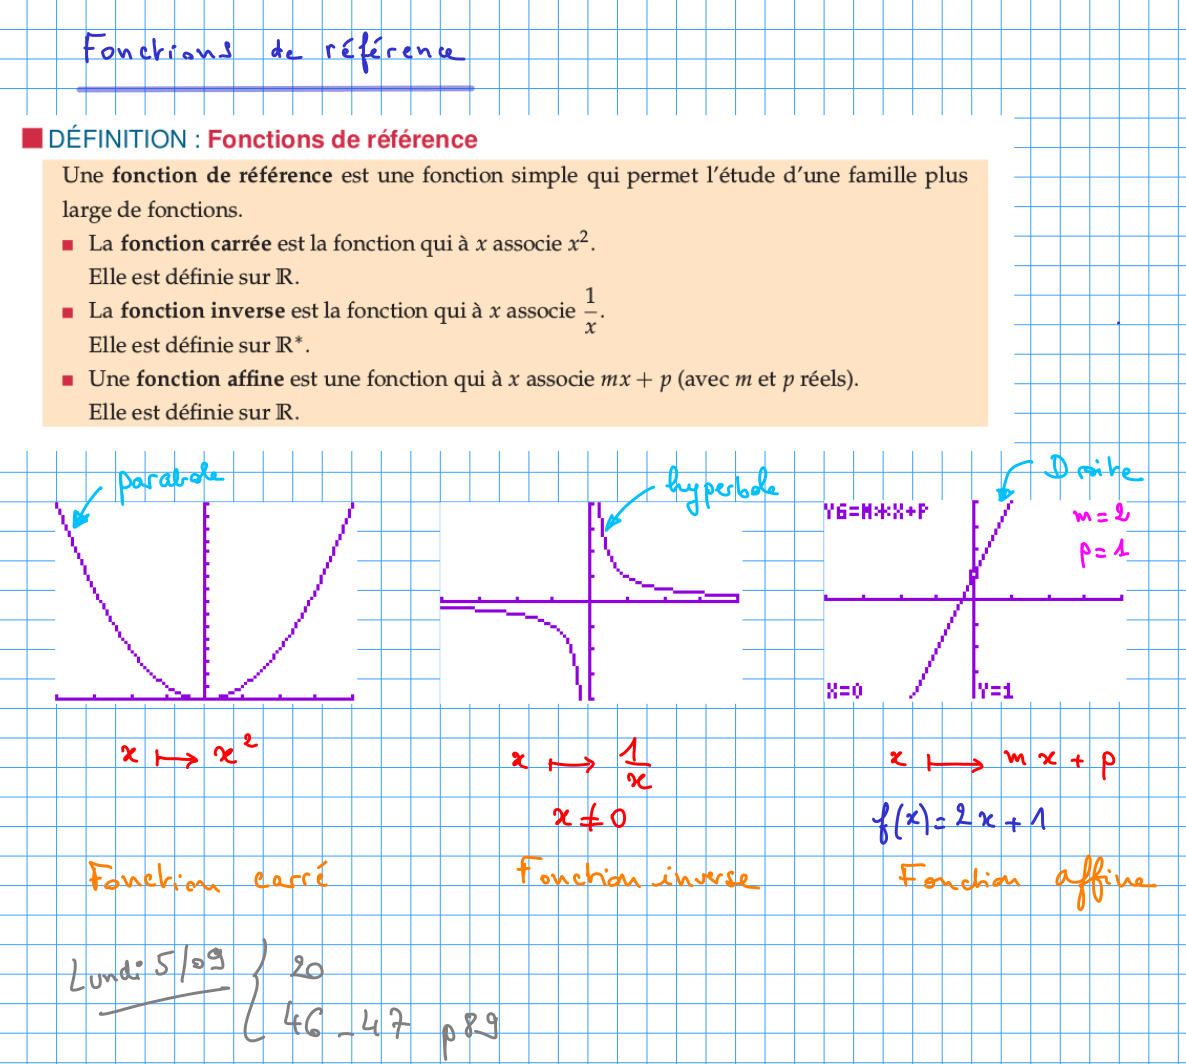 Fonctions de référence
■ DÉFINITION : Fonctions de référence
Une fonction de référence est une fonction simple qui permet l'étude d'une famille plus
large de fonctions.
■ La fonction carrée est la fonction qui à x associe x².
Elle est définie sur ℝ.
■ La fonction inverse est la fonction qui à x associe 1/x.
Elle est définie sur ℝ*.
■ Une fonction affine est une fonction qui à x associe mx + p (avec m et p réels).
Elle est définie sur ℝ.
parabole
hyperbole
Droite
Y6=M*X+P
m = 2
p = 1
X=0 Y=1
x ⟼ x²
x ⟼ 1/x
x ≠ 0
x ⟼ mx + p
f(x) = 2x + 1
Fonction carré
Fonction inverse
Fonction affine
Lundi 5/09 { 20
46 - 47 p 89